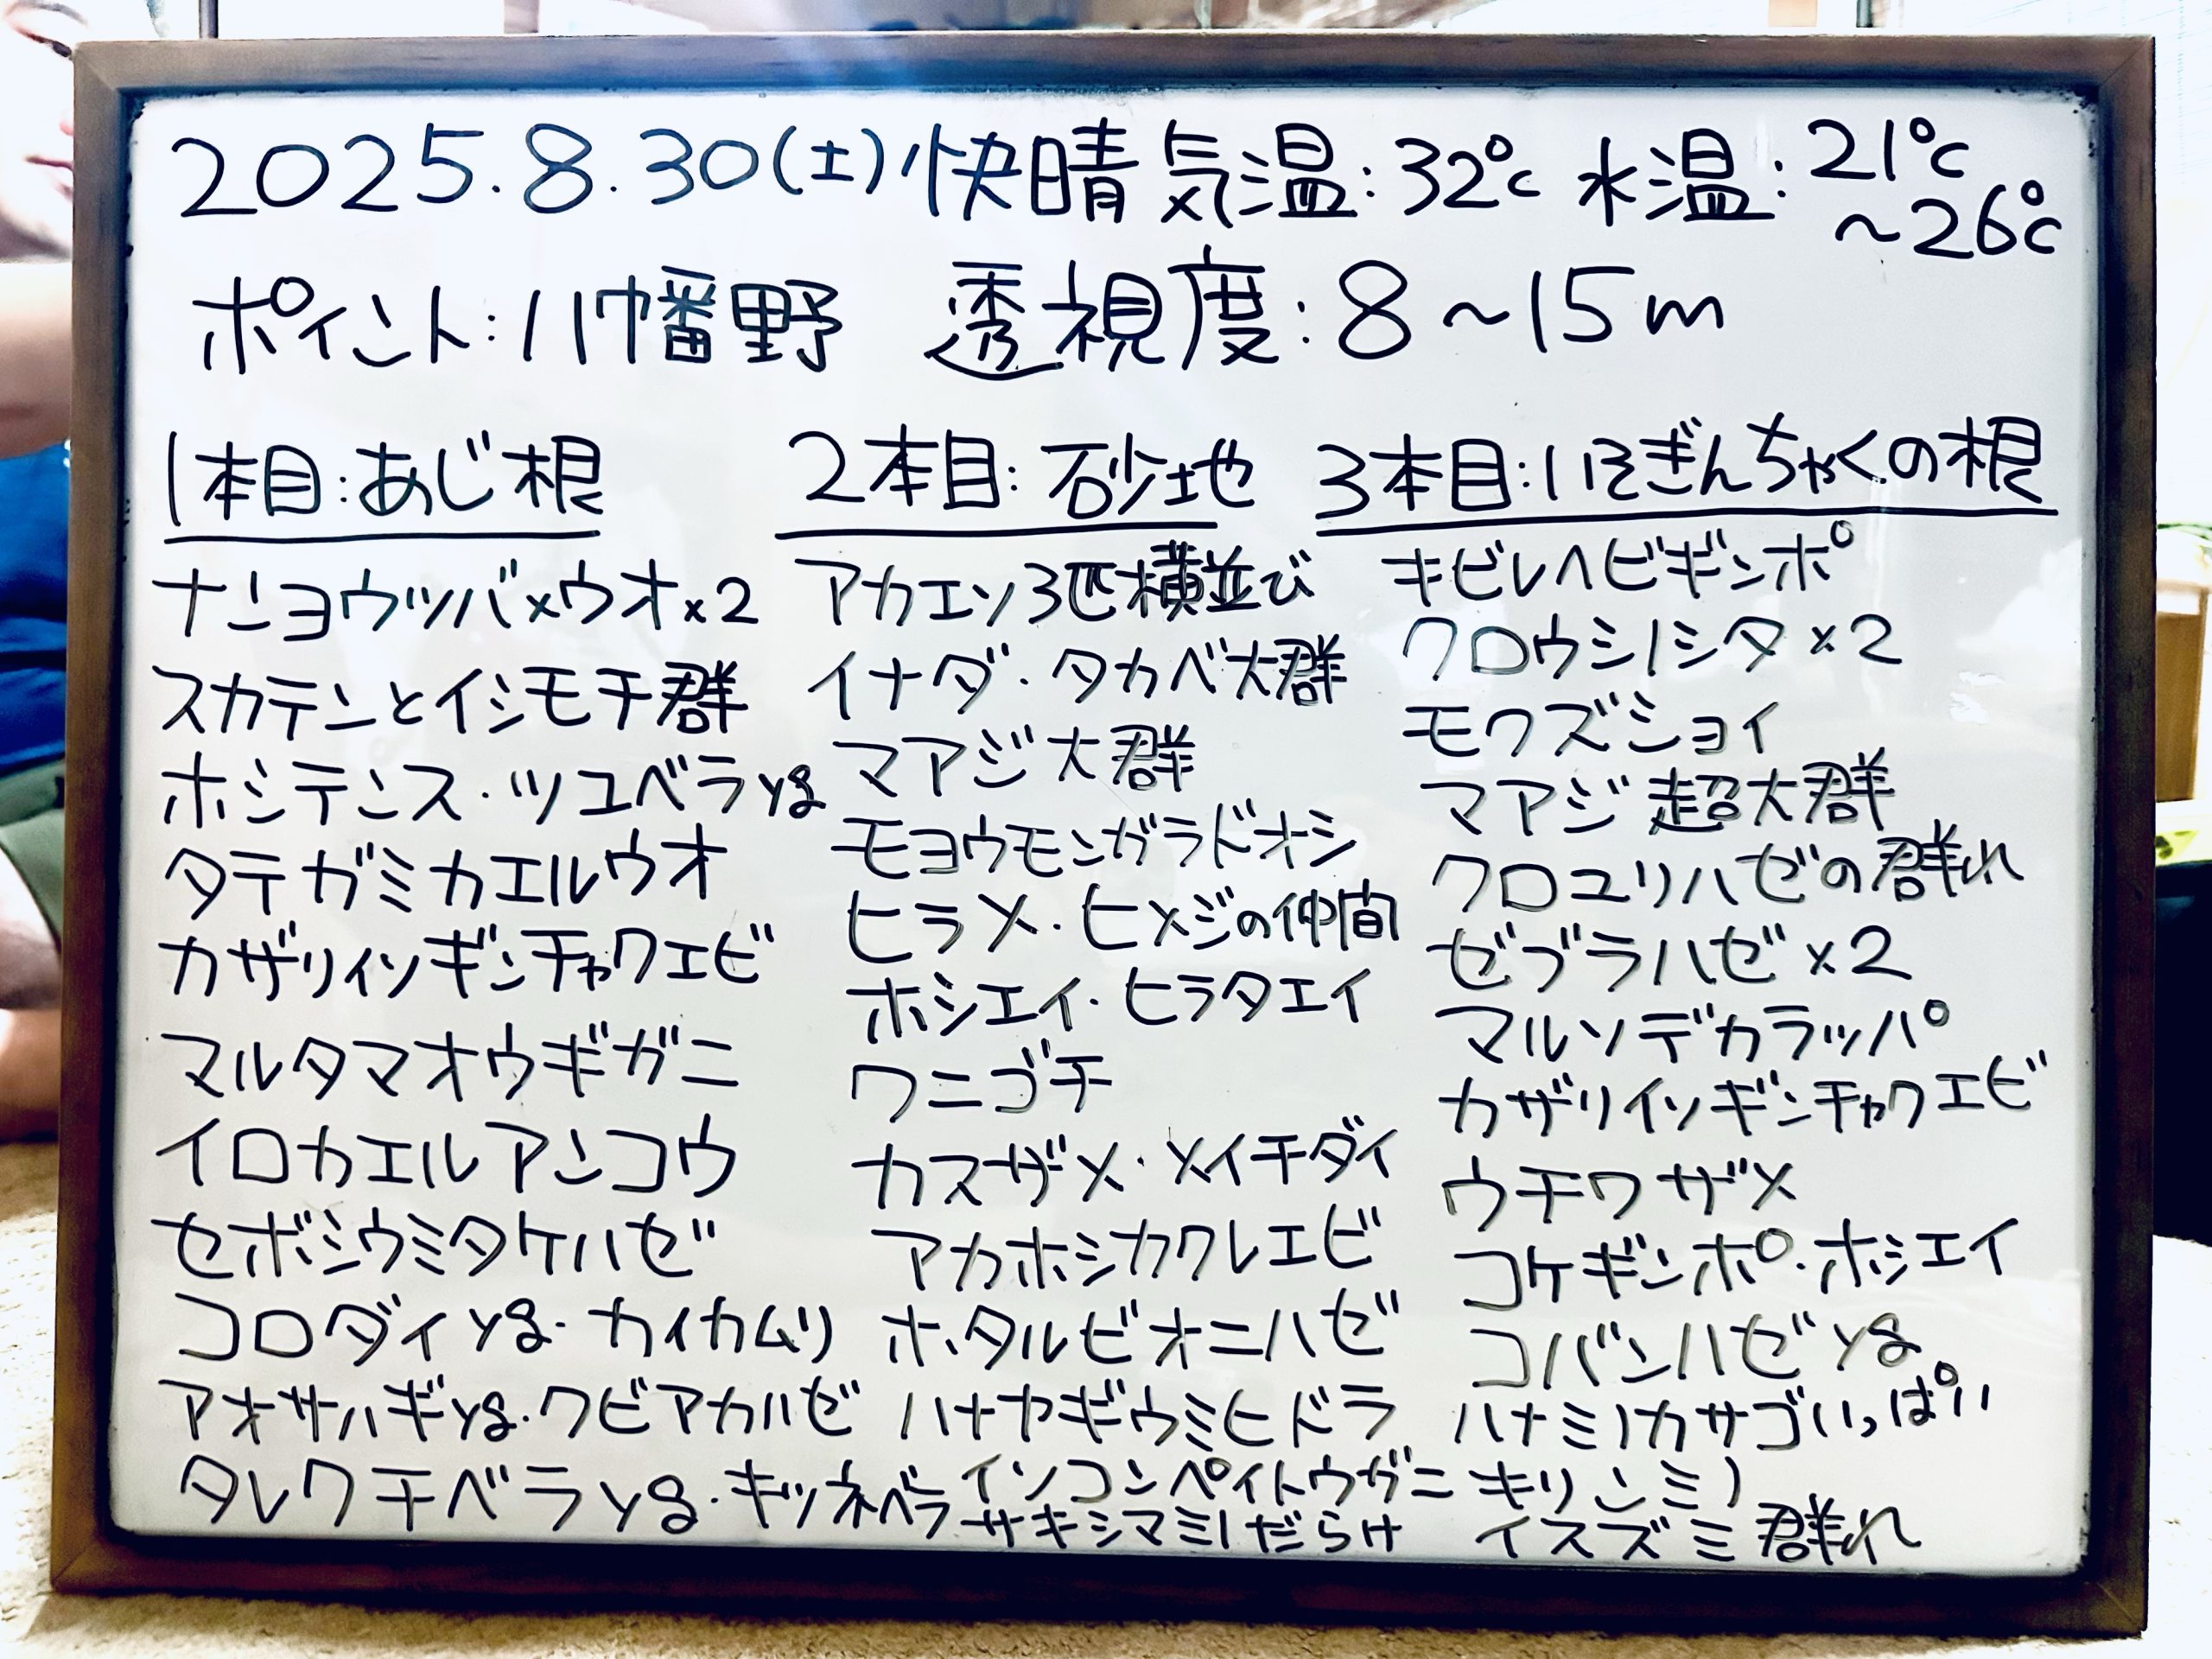 2025.8.30(土)快晴 気温:32℃ 水温:21℃
～26℃
ポイント:八幡野 透視度:8～15m
1本目:あじ根
ナンヨウツバメウオ×2
スカテンとイシモチ群
ホシテンス・ツユベラyg
タテガミカエルウオ
カザリイソギンチャクエビ
マルタマオウギガニ
イロカエルアンコウ
セボシウミタケハゼ
コロダイyg・カイカムリ
アオサハギyg・クビアカハゼ
タレクチベラyg・キツネベラ
2本目:砂地
アカエソ3匹横並び
イナダ・タカベ大群
マアジ大群
モヨウモンガラドオシ
ヒラメ・ヒメジの仲間
ホシエイ・ヒラタエイ
ワニゴチ
カスザメ・メイチダイ
アカホシカクレエビ
ホタルビオニハゼ
ハナヤギウミヒドラ
イソコンペイトウガニ
サキシマミノだらけ
3本目:いそぎんちゃくの根
キビレヘビギンポ
クロウシノシタ×2
モクズショイ
マアジ超大群
クロユリハゼの群れ
ゼブラハゼ×2
マルソデカラッパ
カザリイソギンチャクエビ
ウチワザメ
コケギンポ・ホシエイ
コバンハゼyg
ハナミノカサゴいっぱい
キリンミノ
イスズミ群れ